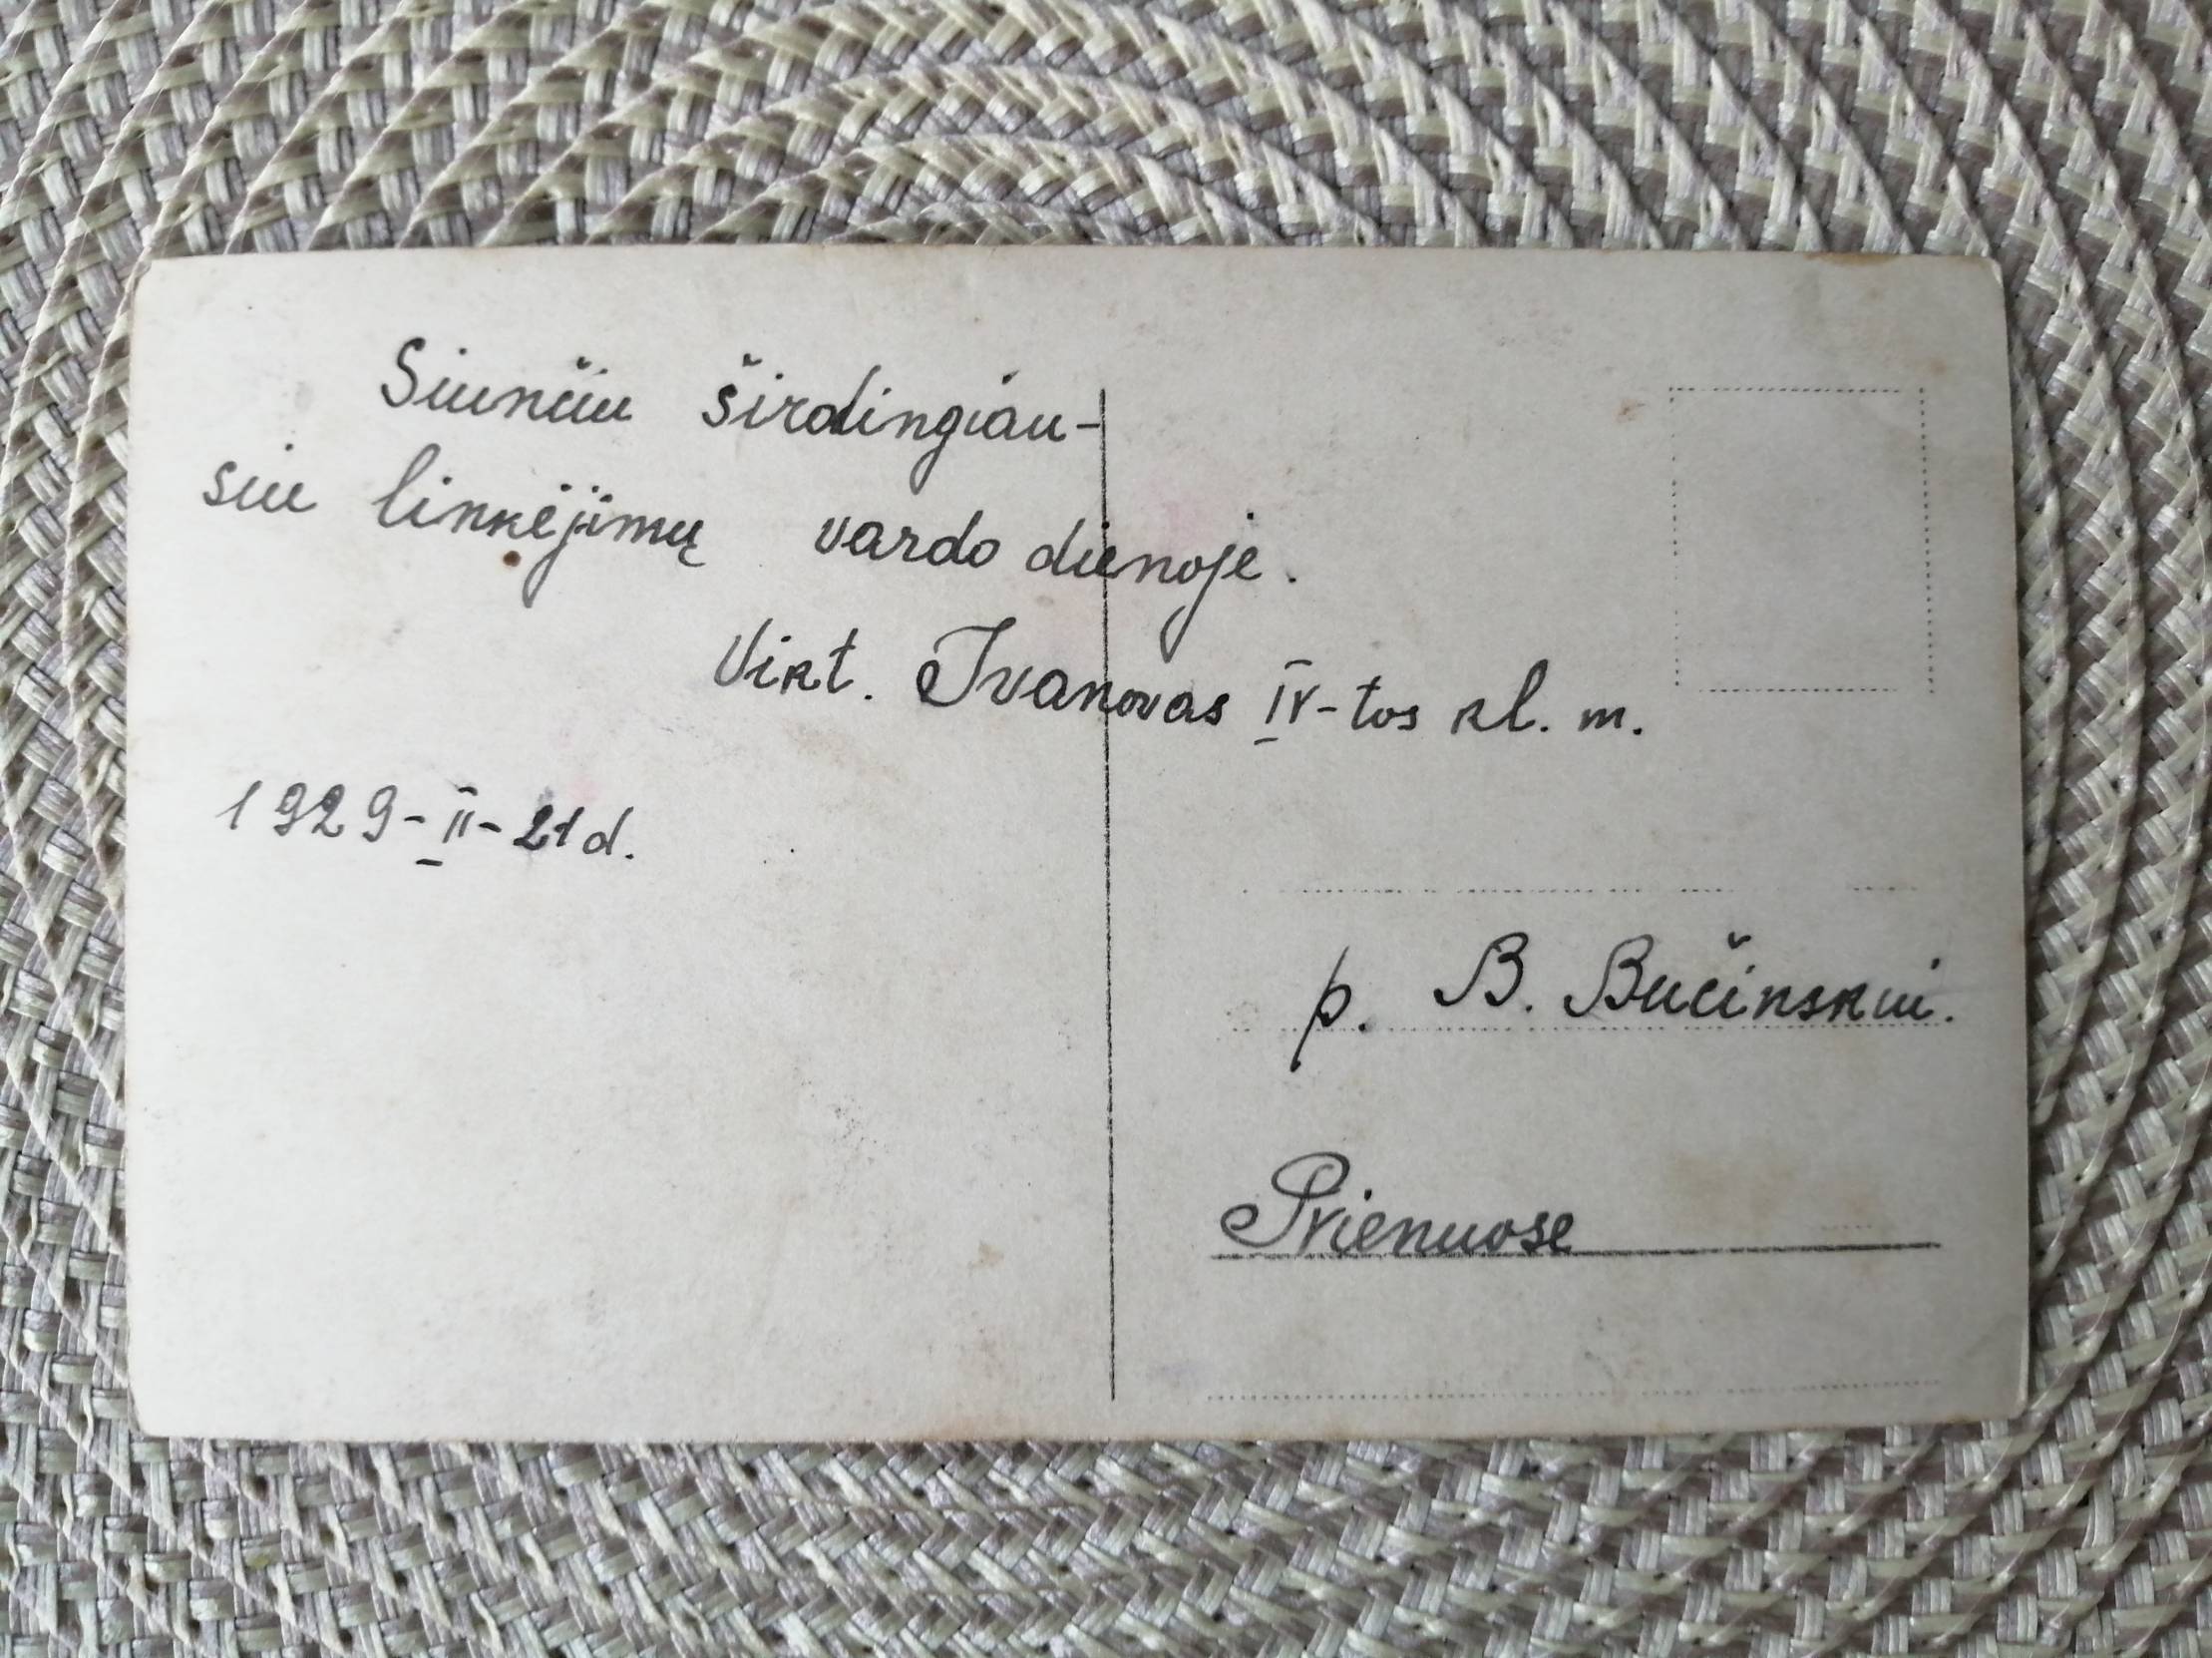 Siunčiu širdingiau-
siu linkėjimų vardo dienoje.
Vikt. Ivanovas IV-tos kl. m.
1929-II-21 d.
p. B. Bučinskui.
Prienuose